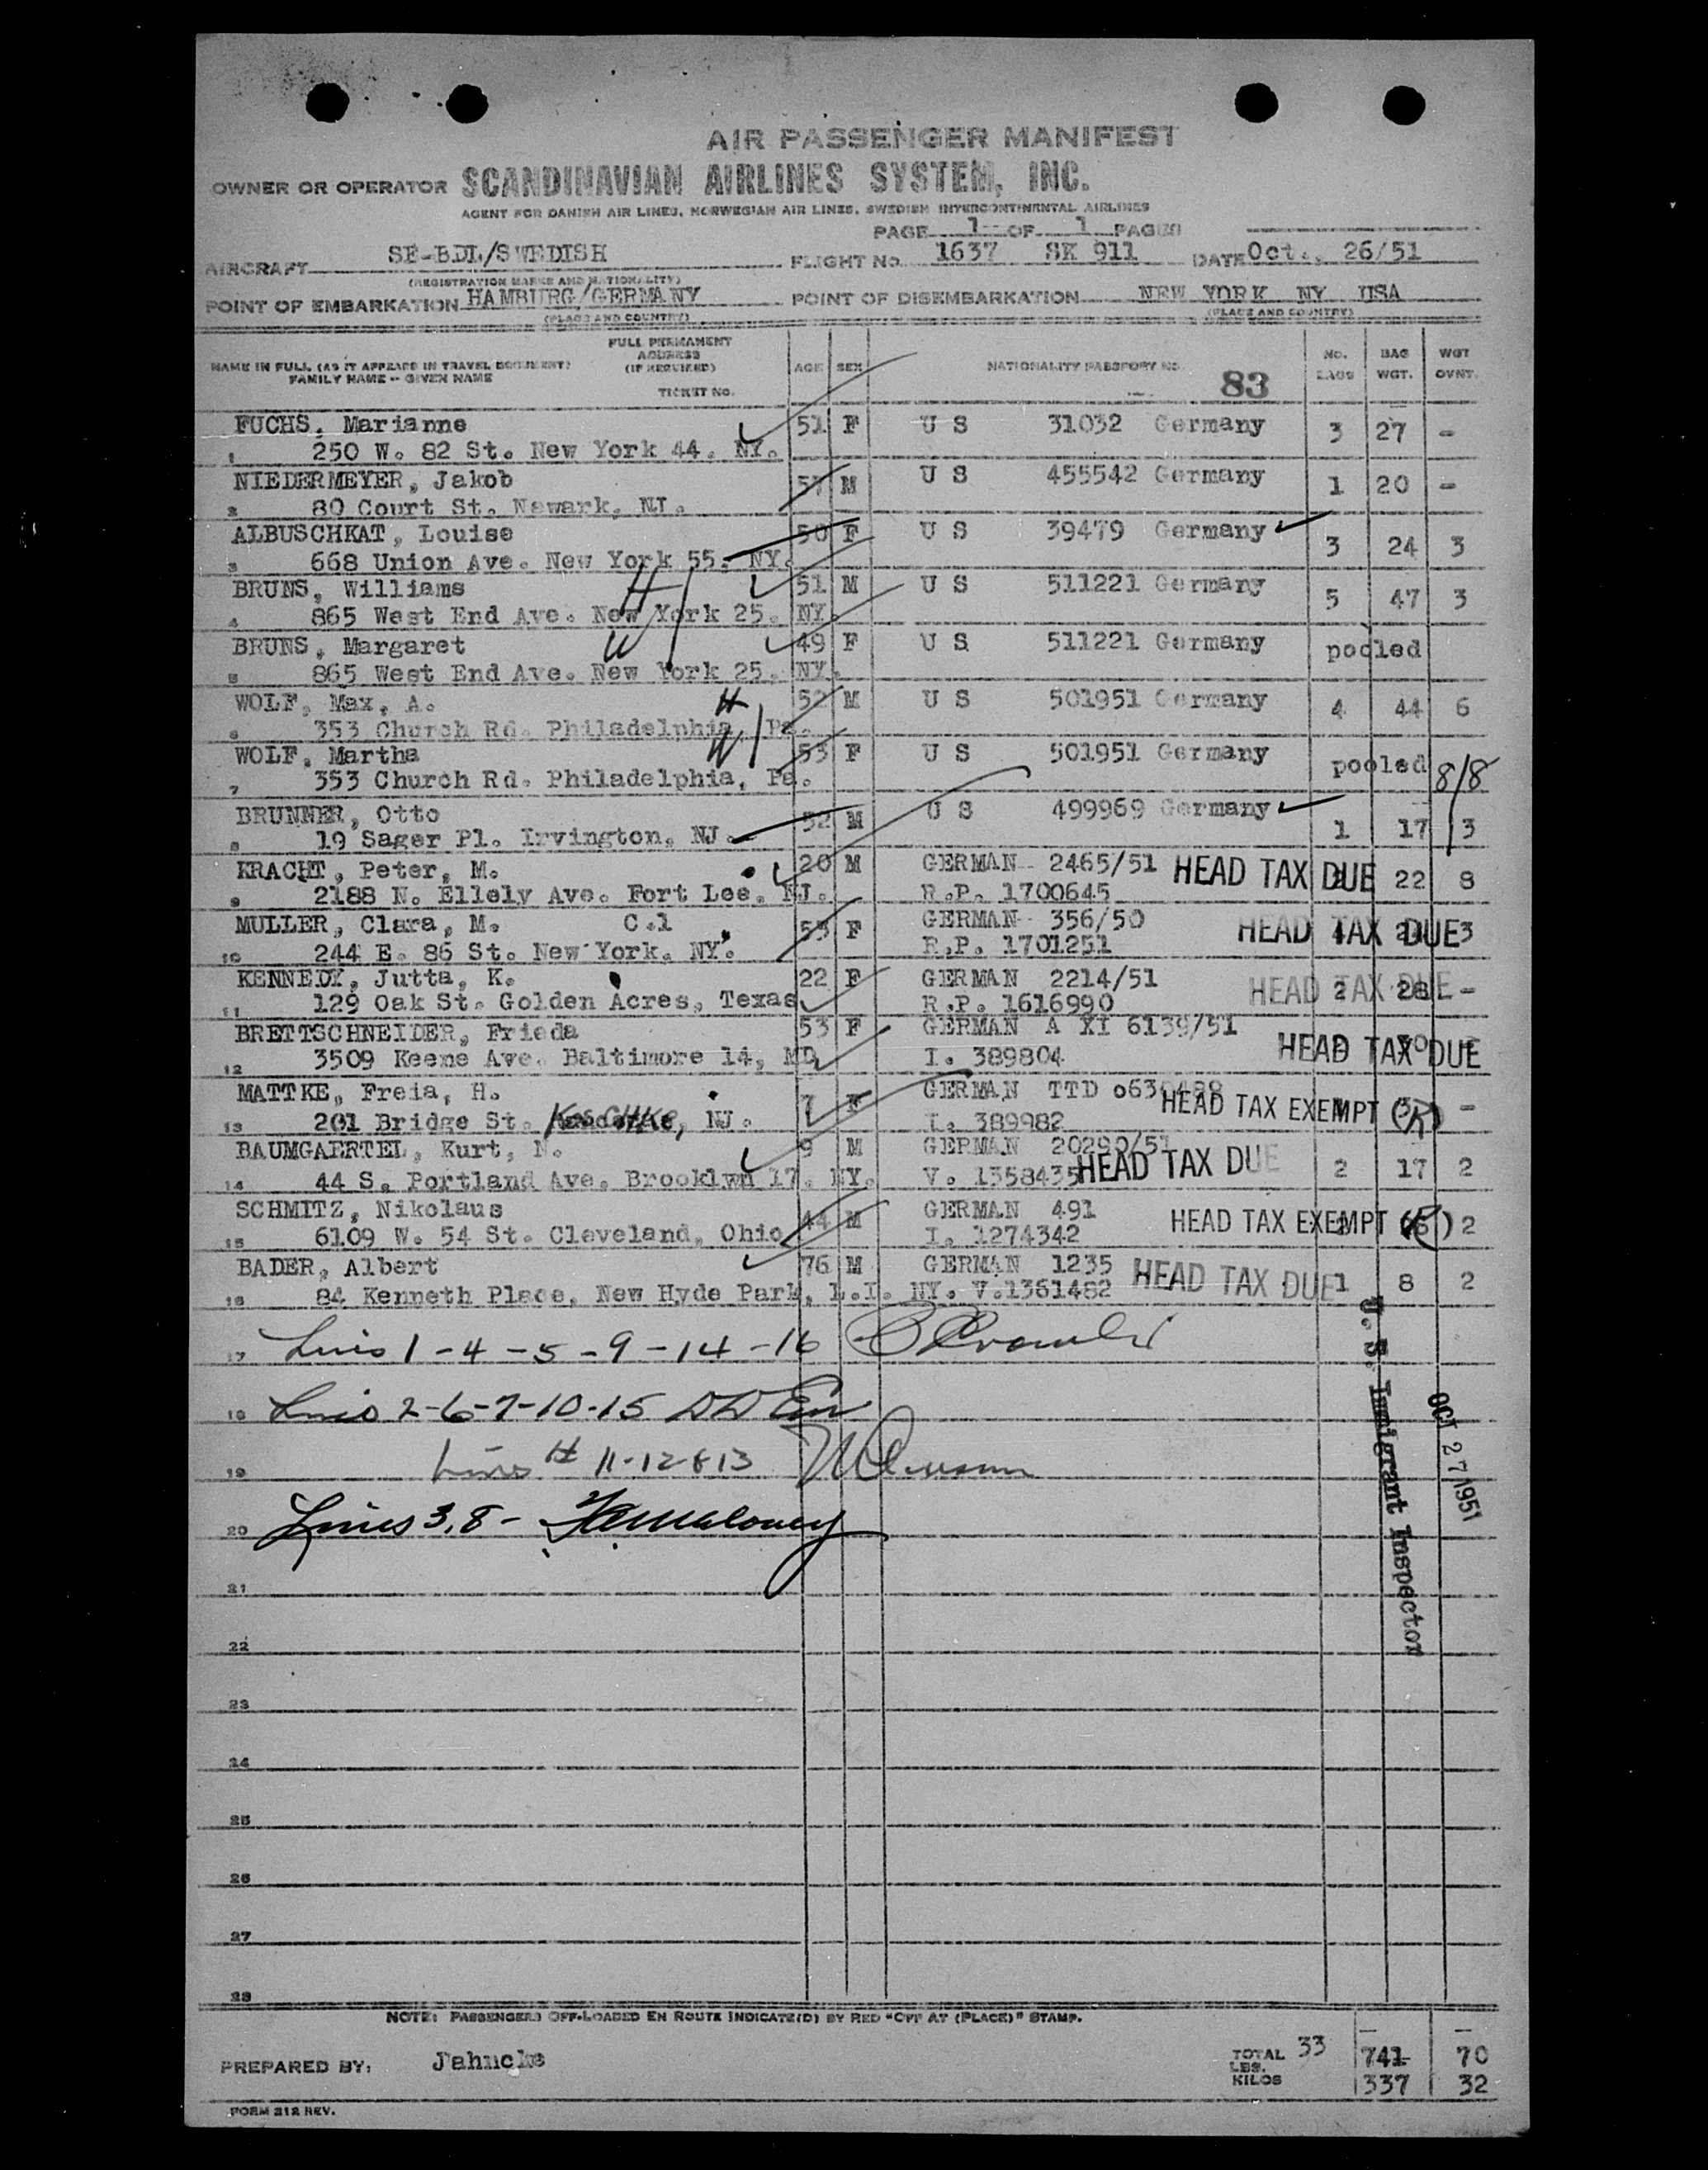 AIR PASSENGER MANIFEST
OWNER OR OPERATOR SCANDINAVIAN AIRLINES SYSTEM, INC.
AGENT FOR DANISH AIR LINES, NORWEGIAN AIR LINES, SWEDISH INTERCONTINENTAL AIRLINES
PAGE 1 OF 1 PAGES
AIRCRAFT SE-BDL/SWEDISH FLIGHT NO. 1637 SK 911 DATE Oct., 26/51
(REGISTRATION MARKS AND NATIONALITY)
POINT OF EMBARKATION HAMBURG/GERMANY POINT OF DISEMBARKATION NEW YORK NY USA
(PLACE AND COUNTRY) (PLACE AND COUNTRY)
NAME IN FULL (AS IT APPEARS IN TRAVEL DOCUMENT) FAMILY NAME - GIVEN NAME FULL PERMANENT ADDRESS (IF REQUIRED) TICKET NO. AGE SEX NATIONALITY PASSPORT NO. 83 NO. BAGS BAG WGT. WGT OVNT.
FUCHS, Marianne 51 F U S 31032 Germany 3 27 -
1 250 W. 82 St. New York 44. NY.
NIEDERMEYER, Jakob 57 M U S 455542 Germany 1 20 -
2 80 Court St. Newark. NJ.
ALBUSCHKAT, Louise 50 F U S 39479 Germany 3 24 3
3 668 Union Ave. New York 55. NY.
BRUNS, Williams 51 M U S 511221 Germany 5 47 3
4 865 West End Ave. New York 25. NY.
H
BRUNS, Margaret 49 F U S 511221 Germany pooled
W
5 865 West End Ave. New York 25. NY.
WOLF, Max, A. H 52 M U S 501951 Germany 4 44 6
6 353 Church Rd. Philadelphia, Pa.
WOLF, Martha W 53 F U S 501951 Germany pooled
7 353 Church Rd. Philadelphia, Pa. 8/8
BRUNNER, Otto 52 M U S 499969 Germany 1 17 3
8 19 Sager Pl. Irvington, NJ.
KRACHT, Peter, M. 20 M GERMAN 2465/51 HEAD TAX DUE 22 8
9 2188 N. Ellely Ave. Fort Lee. NJ. R.P. 1700645
MULLER, Clara, M. C.l 53 F GERMAN 356/50 HEAD TAX DUE 3
10 244 E. 86 St. New York. NY. R.P. 1701251
KENNEDY, Jutta, K. 22 F GERMAN 2214/51 HEAD TAX DUE 2 28 -
11 129 Oak St. Golden Acres, Texas R.P. 1616990
BRETTSCHNEIDER, Frieda 53 F GERMAN A XI 6139/51 HEAD TAX DUE
12 3509 Keene Ave. Baltimore 14, MD I. 389804
MATTKE, Freia, H. 7 F GERMAN TTD HEAD TAX EXEMPT -
13 201 Bridge St. NJ. I. 389982
BAUMGAERTEL, Kurt, N. 9 M GERMAN 20290/51 HEAD TAX DUE 2 17 2
14 44 S. Portland Ave. Brooklyn 17. NY. V. 1358435
SCHMITZ, Nikolaus 44 M GERMAN 491 HEAD TAX EXEMPT 2
15 6109 W. 54 St. Cleveland, Ohio I. 1274342
BADER, Albert 76 M GERMAN 1235 HEAD TAX DUE 1 8 2
16 84 Kenneth Place, New Hyde Park, L.I. NY. V.1361482
17 Lines 1-4-5-9-14-16
18 Lines 2-6-7-10-15
19 Lines # 11-12 & 13
20 Lines 3,8- Maloney
U. S. Immigrant Inspector
OCT 27 1951
21
22
23
24
25
26
27
28
NOTE: PASSENGERS OFF-LOADED EN ROUTE INDICATE(D) BY RED "OFF AT (PLACE)" STAMP.
PREPARED BY: Jahncke
TOTAL 33
LBS. 741 70
KILOS 337 32
FORM 212 REV.